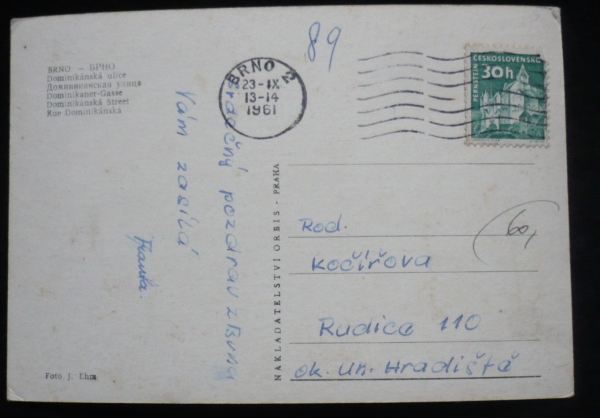 89
BRNO — БРНО
Dominikánská ulice
Доминиканская улица
Dominikaner-Gasse
Dominikánská Street
Rue Dominikánská
BRNO 2
23-IX
13-14
1961
ČESKOSLOVENSKO
30h
PERNŠTEJN
Srdečný pozdrav z Brna
Vám zasílá
Franta.
NAKLADATELSTVÍ ORBIS - PRAHA
Rod.
Kočířova
60,
Rudice 110
ok. Uh. Hradiště
Foto J. Ehm